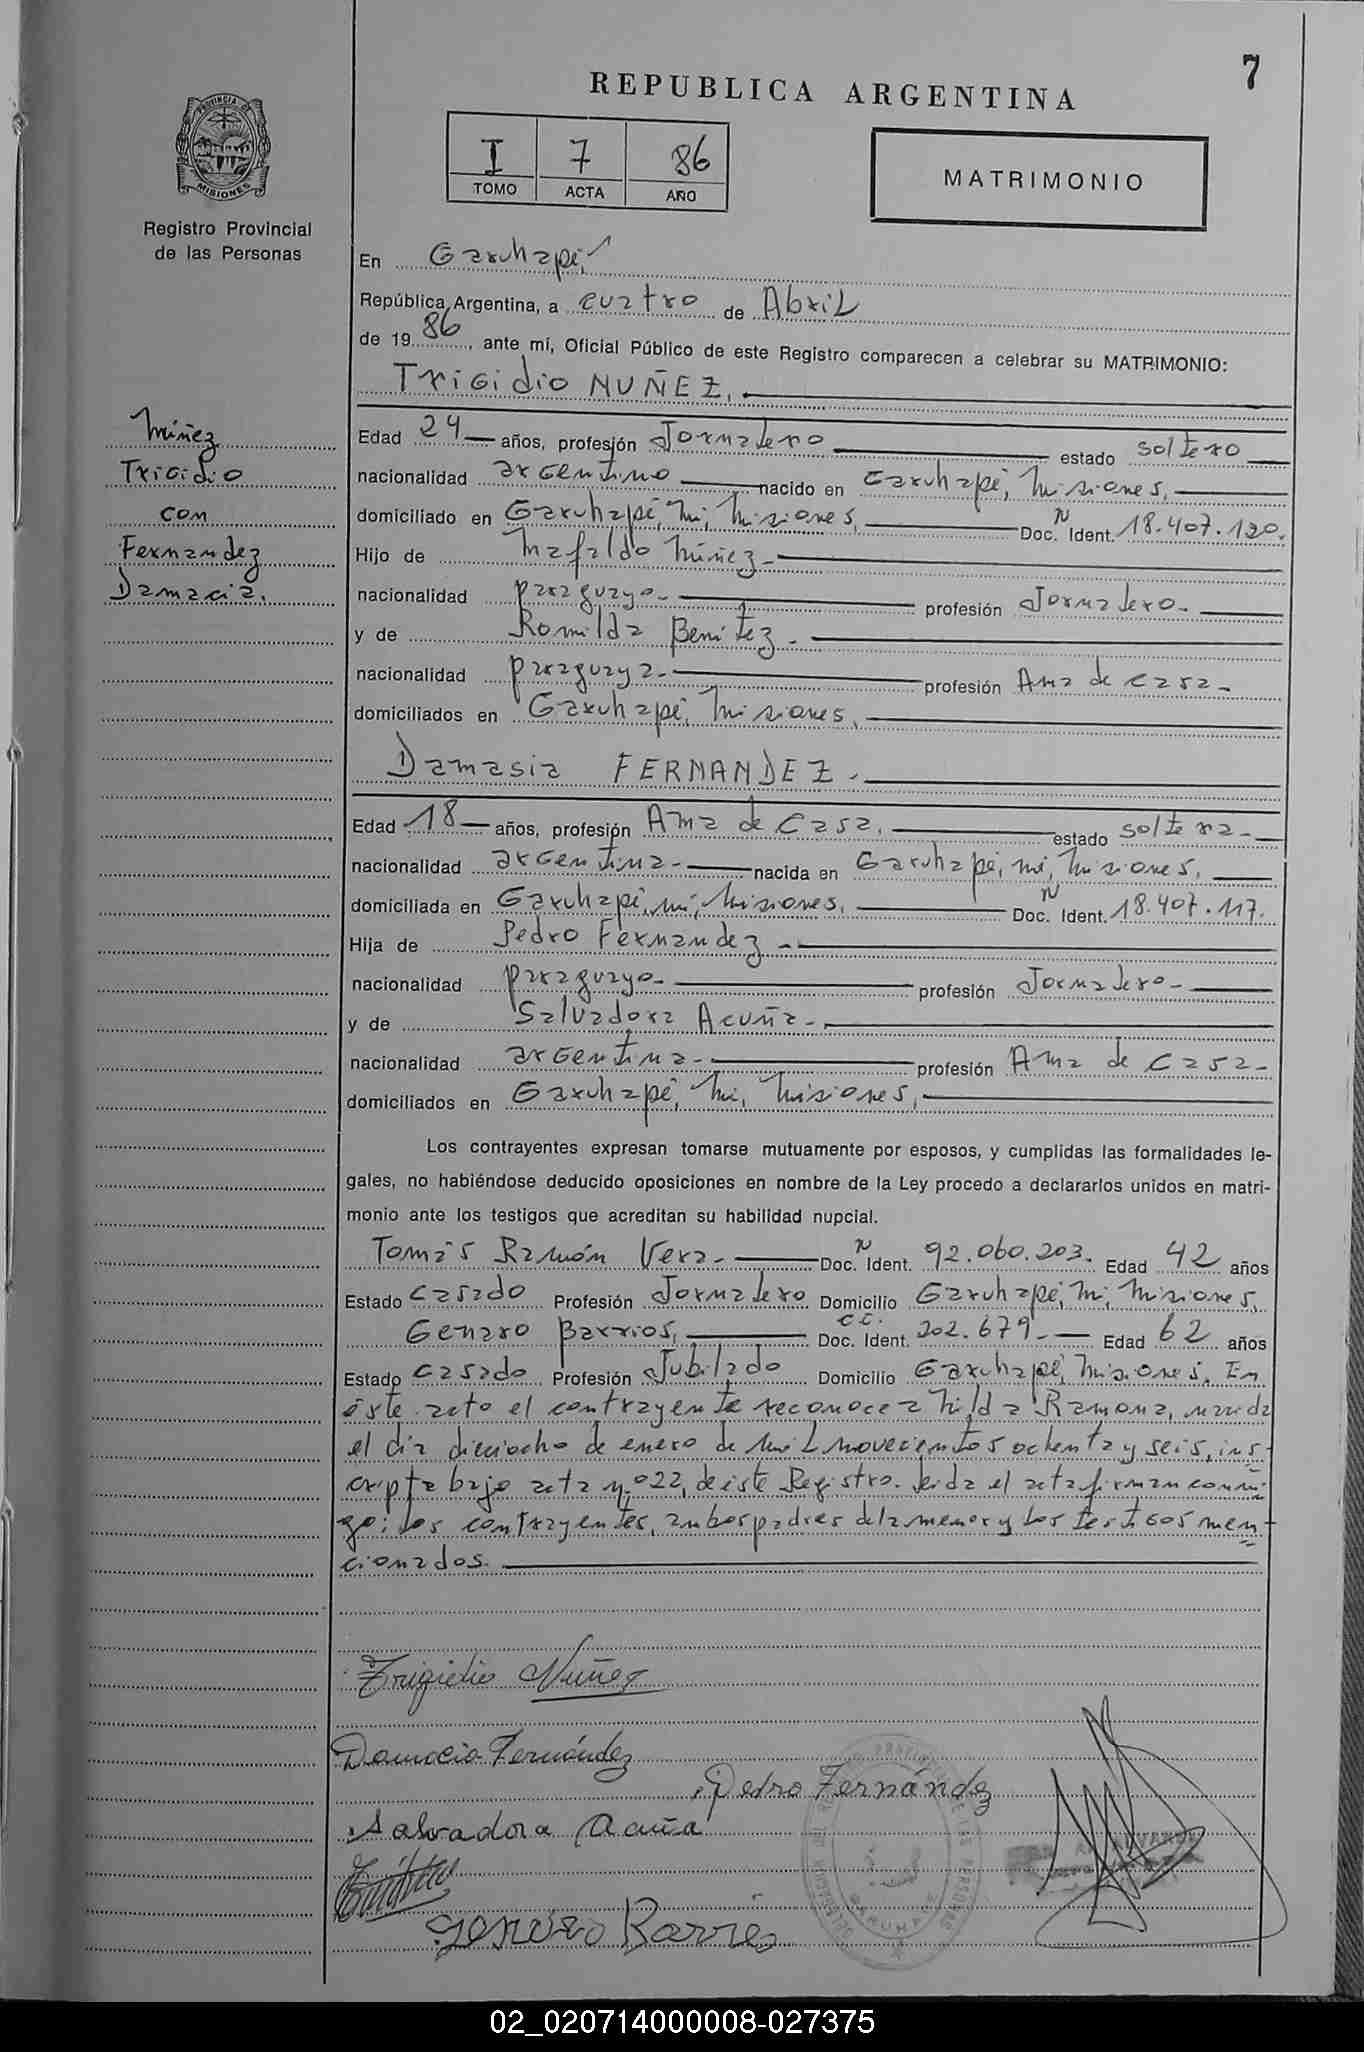 7
REPUBLICA ARGENTINA
I 7 86
TOMO ACTA AÑO
MATRIMONIO
PROVINCIA DE
MISIONES
Registro Provincial
de las Personas
En Garuhapé,
República Argentina, a cuatro de Abril
de 1986, ante mí, Oficial Público de este Registro comparecen a celebrar su MATRIMONIO:
Trigidio NUÑEZ.
Núñez
Trigidio
con
Fernandez
Damacia.
Edad 24 años, profesión Jornalero estado soltero
nacionalidad argentino nacido en Garuhapé, Misiones,
domiciliado en Garuhapé, mí, Misiones, Doc. Ident. N 18.407.120.
Hijo de Mafaldo Núñez-
nacionalidad paraguayo- profesión Jornalero-
y de Romilda Benítez-
nacionalidad paraguaya- profesión Ama de casa-
domiciliados en Garuhapé, Misiones,
Damasia FERNANDEZ-
Edad 18 años, profesión Ama de Casa. estado soltera-
nacionalidad argentina- nacida en Garuhapé, mí, Misiones,
domiciliada en Garuhapé, mí, Misiones, Doc. Ident. N 18.407.117.
Hija de Pedro Fernandez-
nacionalidad paraguayo- profesión Jornalero-
y de Salvadora Acuña-
nacionalidad argentina- profesión Ama de Casa-
domiciliados en Garuhapé, mí, Misiones,
Los contrayentes expresan tomarse mutuamente por esposos, y cumplidas las formalidades le-
gales, no habiéndose deducido oposiciones en nombre de la Ley procedo a declararlos unidos en matri-
monio ante los testigos que acreditan su habilidad nupcial.
Tomás Ramón Vera- Doc. Ident. N 92.060.203. Edad 42 años
Estado casado Profesión Jornalero Domicilio Garuhapé, mí, Misiones,
Genaro Barrios, Doc. Ident. C.I. 202.679- Edad 62 años
Estado casado Profesión Jubilado Domicilio Garuhapé, Misiones. En
éste acto el contrayente reconoce a Hilda Ramona, nacida
el día dieciocho de enero de mil novecientos ochenta y seis, ins-
cripta bajo acta n°22, de éste Registro. Leida el acta firman conmi-
go: los contrayentes, ambos padres de la menor y los testigos men-
cionados.
Trigidio Nuñez
Damacia Fernández
Pedro Fernández
Salvadora Acuña
Genaro Barrios
GARUHAPE
02_020714000008-027375